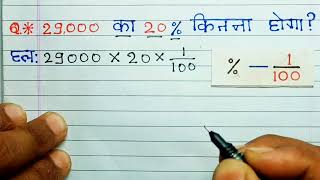 Q* 29,000 का 20 % कितना होगा?
हल: 29000 × 20 × 1/100
% – 1/100